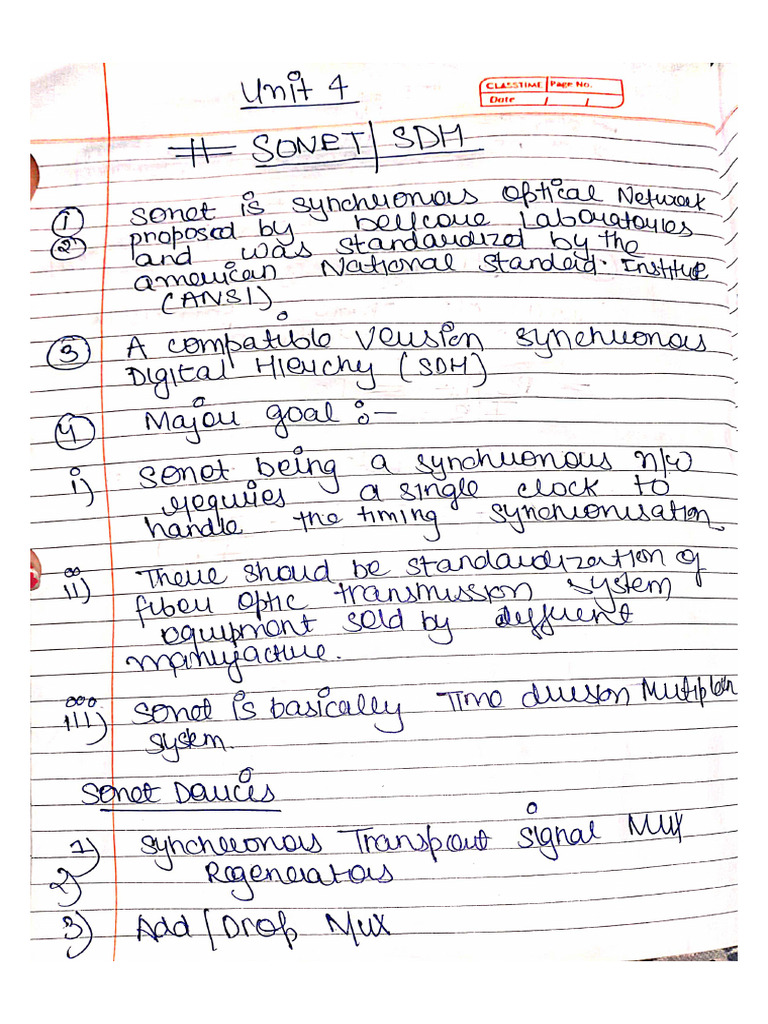 Unit 4
CLASSTIME Page No.
Date / /
# SONET/SDH
① Sonet is synchronous optical Network
② proposed by bellcore Laboratories
and was standardized by the
american National Standard. Institue
(ANSI)
③ A compatible Version synchronous
Digital Hierchy (SDH)
④ Major goal :-
i) Sonet being a synchronous n/w
requires a single clock to
handle the timing synchronisation
ii) There shoud be standardization of
fiber optic transmission system
equipment sold by different
manufacture.
iii) Sonet is basically Time division Multiplexin
system.
Sonet Devices
1) Synchronous Transport signal Mux
2) Regenerators
3) Add/Drop Mux